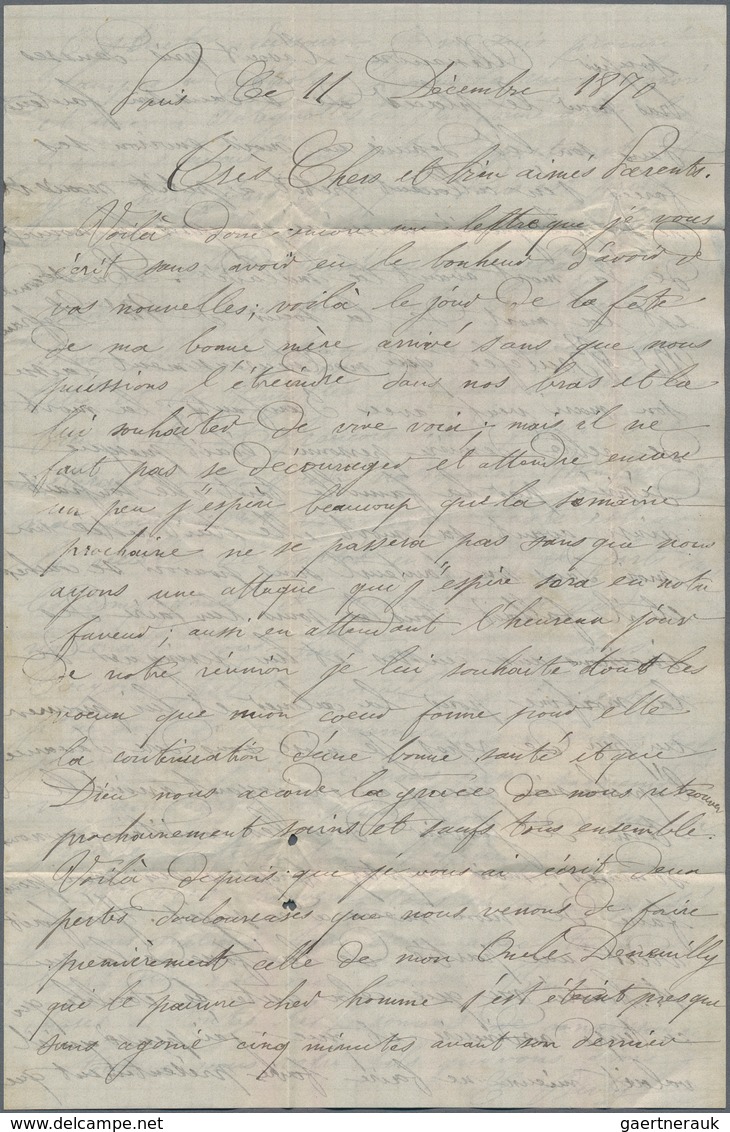 Paris Ce 11 Décembre 1870
Très Chers et bien aimés Parents.
Voilà donc encore une lettre que je vous
écrit sans avoir eu le bonheur d'avoir de
vos nouvelles; voilà le jour de la fête
de ma bonne mère arrivé sans que nous
puissions l'étreindre dans nos bras et la
lui souhaiter de vive voix; mais il ne
faut pas se décourager et attendre encore
un peu j'espère beaucoup que la semaine
prochaine ne se passera pas sans que nous
ayons une attaque qui j'espère sera en notre
faveur; aussi en attendant l'heureux jour
de notre réunion je lui souhaite tout les
voeux que mon coeur forme pour elle
la continuation d'une bonne santé et que
Dieu nous accorde la grâce de nous retrouver
prochainement sains et saufs tous ensemble.
Voilà depuis que je vous ai écrit deux
pertes douloureuses que nous venons de faire
premièrement celle de mon Oncle Deneuilly
qui le pauvre cher homme s'est éteint presque
sans agonie cinq minutes avant son dernier
delcampe.net
gaertnerauk